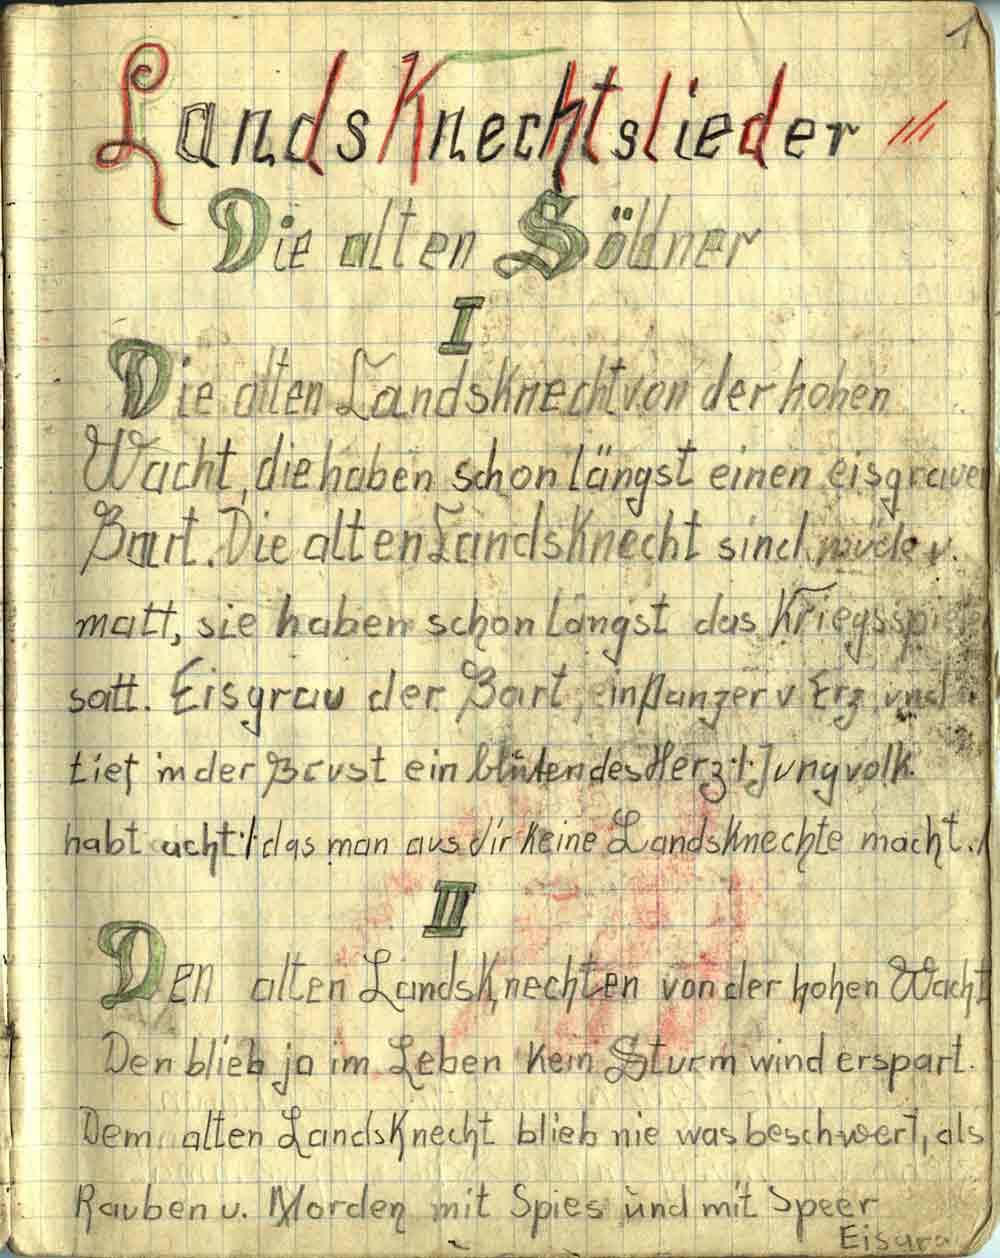 1
LandsKnechtslieder
Die alten Söldner
I
Die alten LandsKnecht von der hohen
Wacht, die haben schon längst einen eisgrauen
Bart. Die alten LandsKnecht sind müde u.
matt, sie haben schon längst das Kriegsspiel
satt. Eisgrau der Bart, ein Panzer v Erz und
tief in der Brust ein blütendes Herz·/·Jungvolk
habt acht·/·das man aus dir keine LandsKnechte macht./
II
Den alten LandsKnechten von der hohen Wacht
Den blieb ja im Leben kein Sturm wind erspart.
Dem alten LandsKnecht blieb nie was beschwert, als
Rauben u. Morden mit Spies und mit Speer
Eisgra